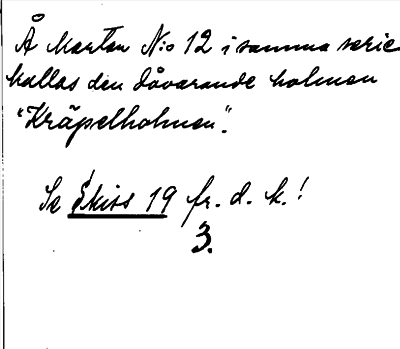 Å kartan N:o 12 i samma serie
kallas den dåvarande holmen
"Kräpelholmen".
Se Skiss 19 fr. d. k.!
3.